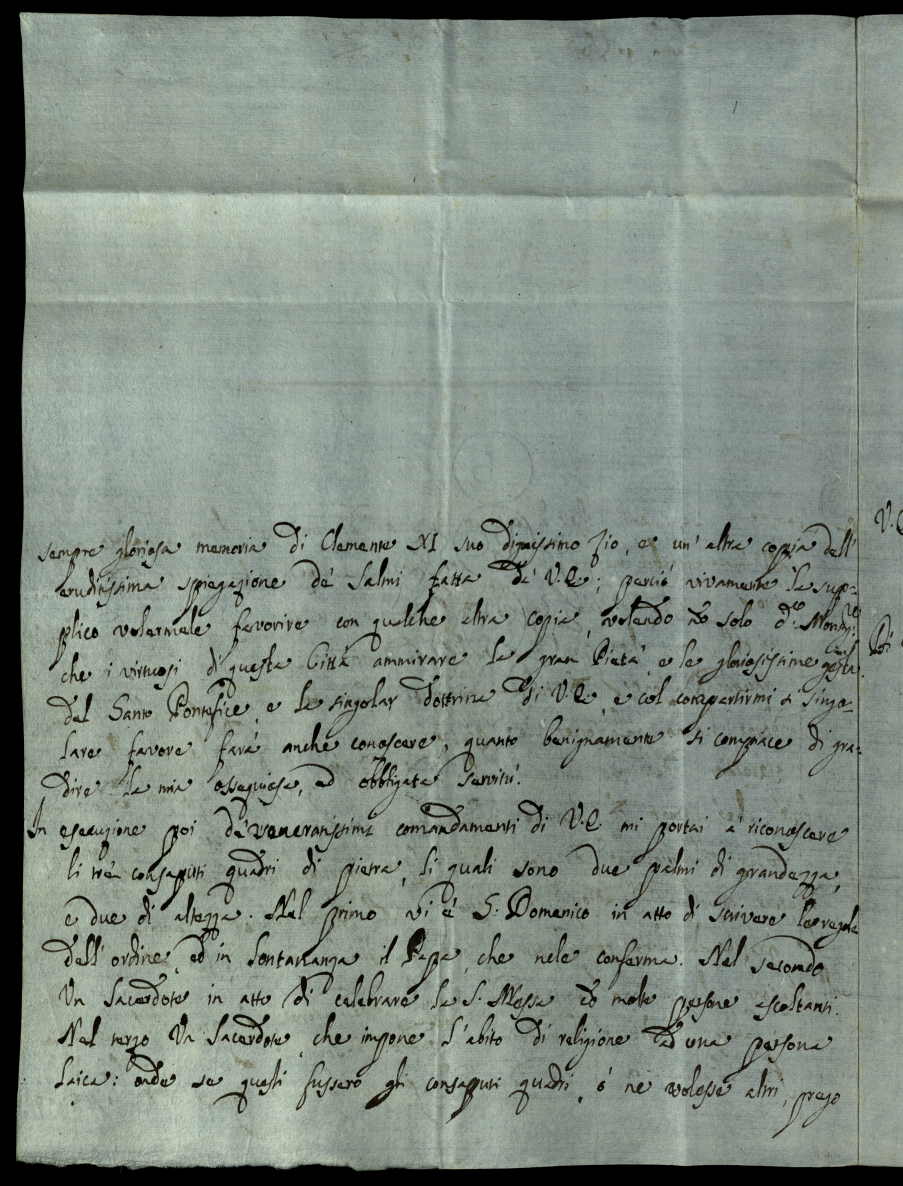 sempre gloriosa memoria di Clemente XI suo dignissimo Zio, e un' altra coppia dell'
eruditissima spiegazione de' Salmi fatta da V. E.; perciò vivamente la sup-
plico volermale favorire con qualche altra copia, volendo nō solo do. Monsig.
che i virtuosi di questa Città ammirare la gran Pietà, e le gloriosissime gesta
del Santo Pontefice, e la singolar dottrina di V. E., e col compartirmi sì singo-
lare favore farà anche conoscere, quanto benignamente si compiace di gra-
dire la mia ossequiosa, ed obbligata servitù.
In esecuzione poi de' veneratissimi comandamenti di V. E. mi portai a' riconoscere
li trè consaputi quadri di pietra, li quali sono due palmi di grandezza,
e due di altezza. Nel primo vi è S. Domenico in atto di scrivere le regole
dell' ordine, ed in lontananza il Papa, che nele conferma. Nel secondo
Un Sacerdote in atto di celebrare la S. Messa cō molte persone ascoltanti.
Nel terzo Un Sacerdote, che impone l'abito di religione ad una persona
laica: onde se questi fussero gli consaputi quadri, ò ne volesse altri, prego
V. E.
Di